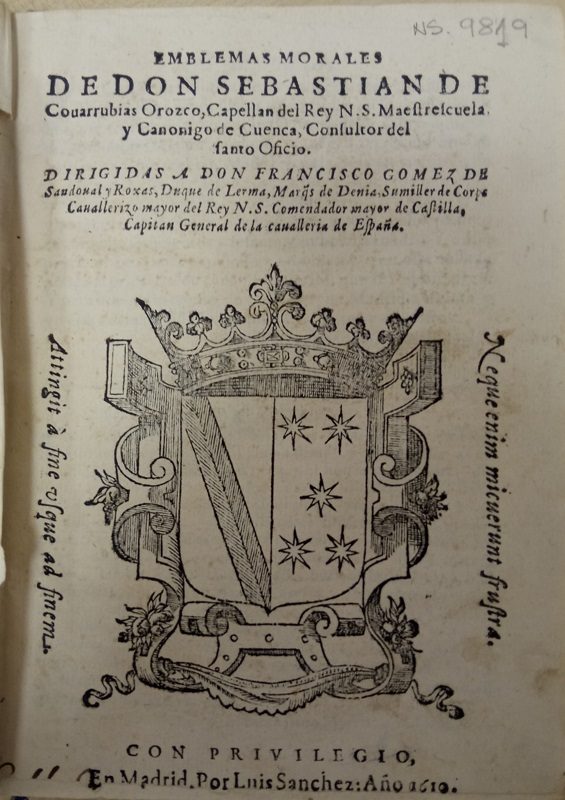 NS. 9819
EMBLEMAS MORALES
DE DON SEBASTIAN DE
Couarrubias Orozco, Capellan del Rey N. S. Maeſtreſcuela,
y Canonigo de Cuenca, Conſultor del
ſanto Oficio.
DIRIGIDAS A DON FRANCISCO GOMEZ DE
Sandoual y Roxas, Duque de Lerma, Marq̃s de Denia, Sumiller de Corps
Cauallerizo mayor del Rey N. S. Comendador mayor de Caſtilla,
Capitan General de la caualleria de Eſpaña.
Attingit à fine vſque ad finem.
Neque enim micuerunt fruſtra.
CON PRIVILEGIO,
En Madrid. Por Luis Sanchez: Año 1610.